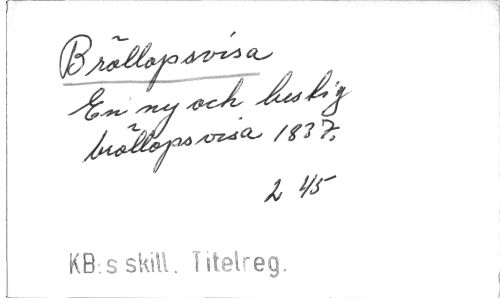 Bröllopsvisa
En ny och lustig
bröllopsvisa 1837.
2 45
KB:s skill. Titelreg.